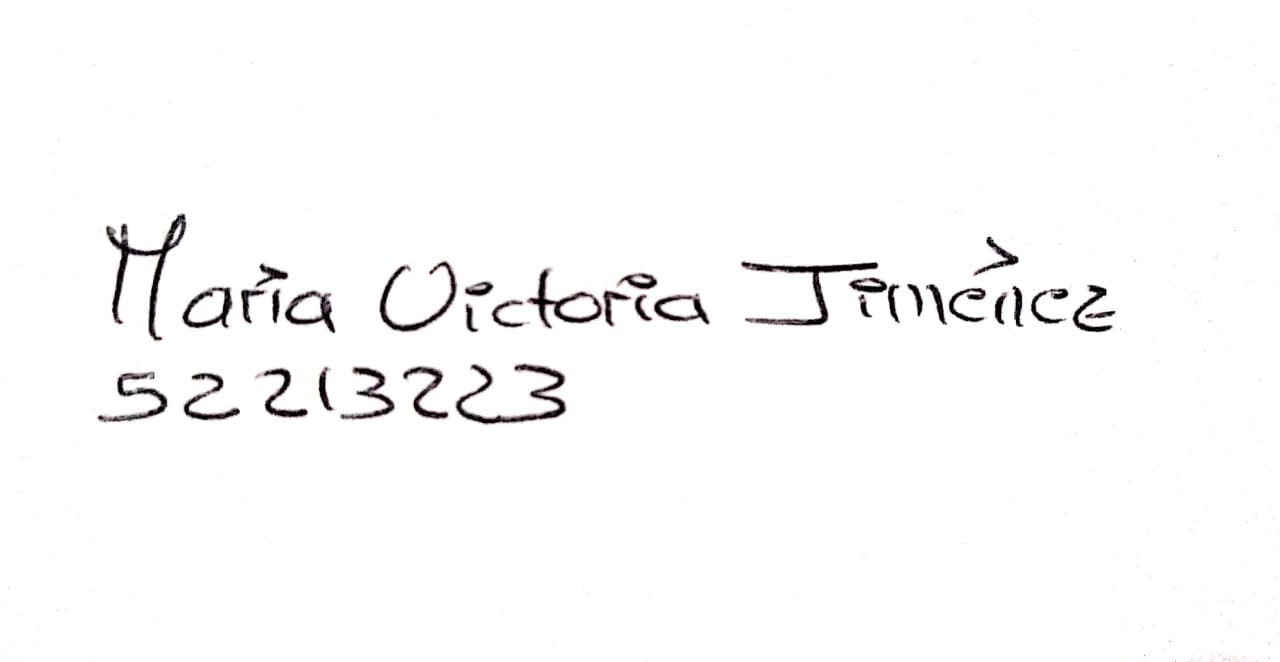 María Victoria Jiménez
52213223